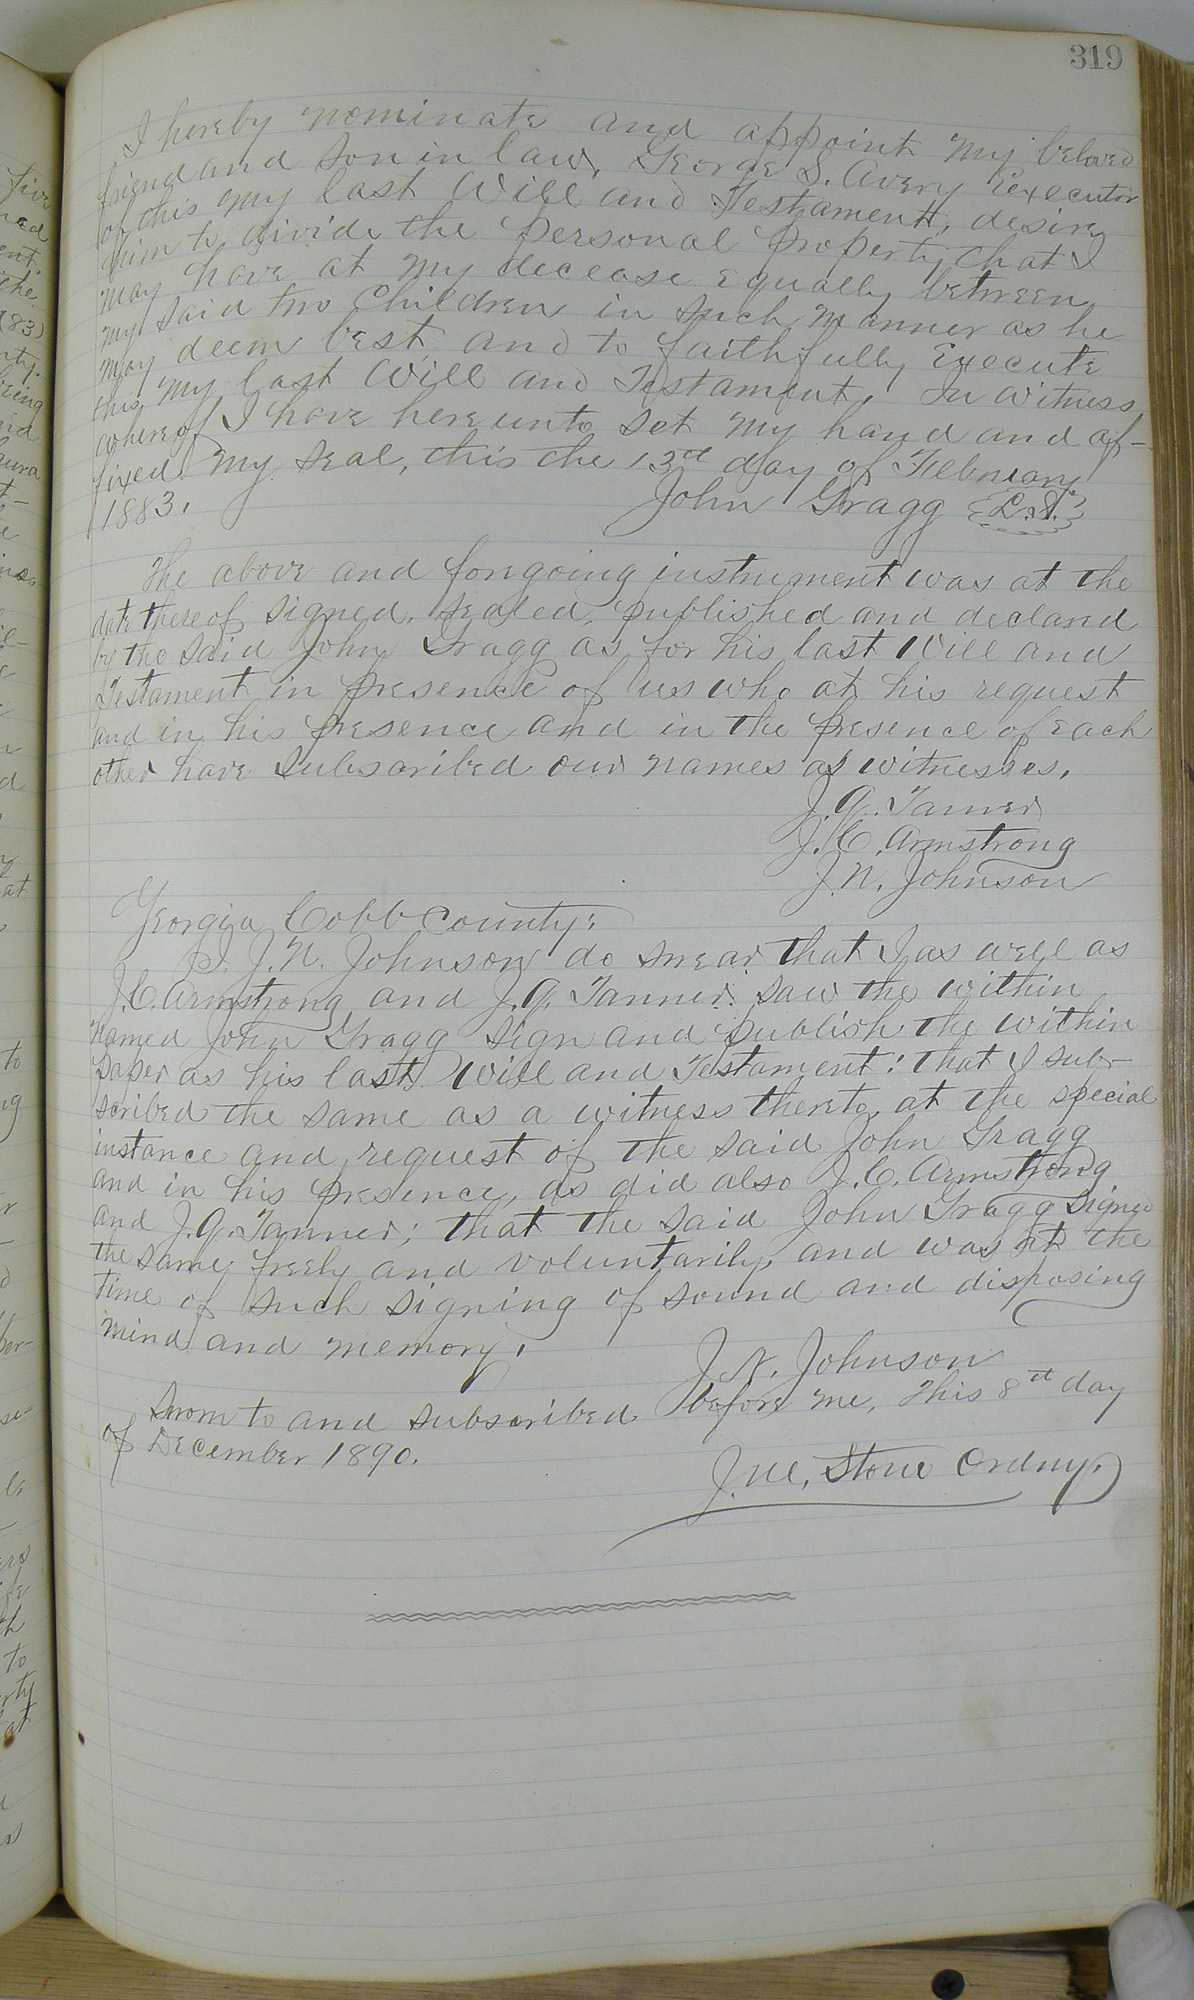 319
I hereby nominate and appoint my beloved
friend and son in law, George S. Avery Executor
of this my last Will and Testament, desiring
him to divide the personal property that I
may have at my decease equally between
my said two children in such manner as he
may deem best, and to faithfully Execute
this my last Will and Testament. In witness
whereof I have hereunto set my hand and af-
fixed my seal, this the 13th day of February
1883.
John Gragg L.S.
The above and foregoing instrument was at the
date thereof signed, sealed, published and declared
by the said John Gragg as for his last Will and
Testament in presence of us who at his request
and in his presence and in the presence of each
other have subscribed our names as witnesses.
J. G. Tanner
J. C. Armstrong
J. N. Johnson
Georgia Cobb County:
I, J. N. Johnson do swear that I as well as
J. C. Armstrong and J. G. Tanner saw the within
named John Gragg sign and publish the within
paper as his last Will and Testament: that I sub-
scribed the same as a witness thereto, at the special
instance and request of the said John Gragg
and in his presence, as did also J. C. Armstrong
and J. G. Tanner; that the said John Gragg signed
the same freely and voluntarily, and was at the
time of such signing of sound and disposing
mind and memory.
J. N. Johnson
Sworn to and subscribed before me, this 8th day
of December 1890.
J. M. Stone Ordny.